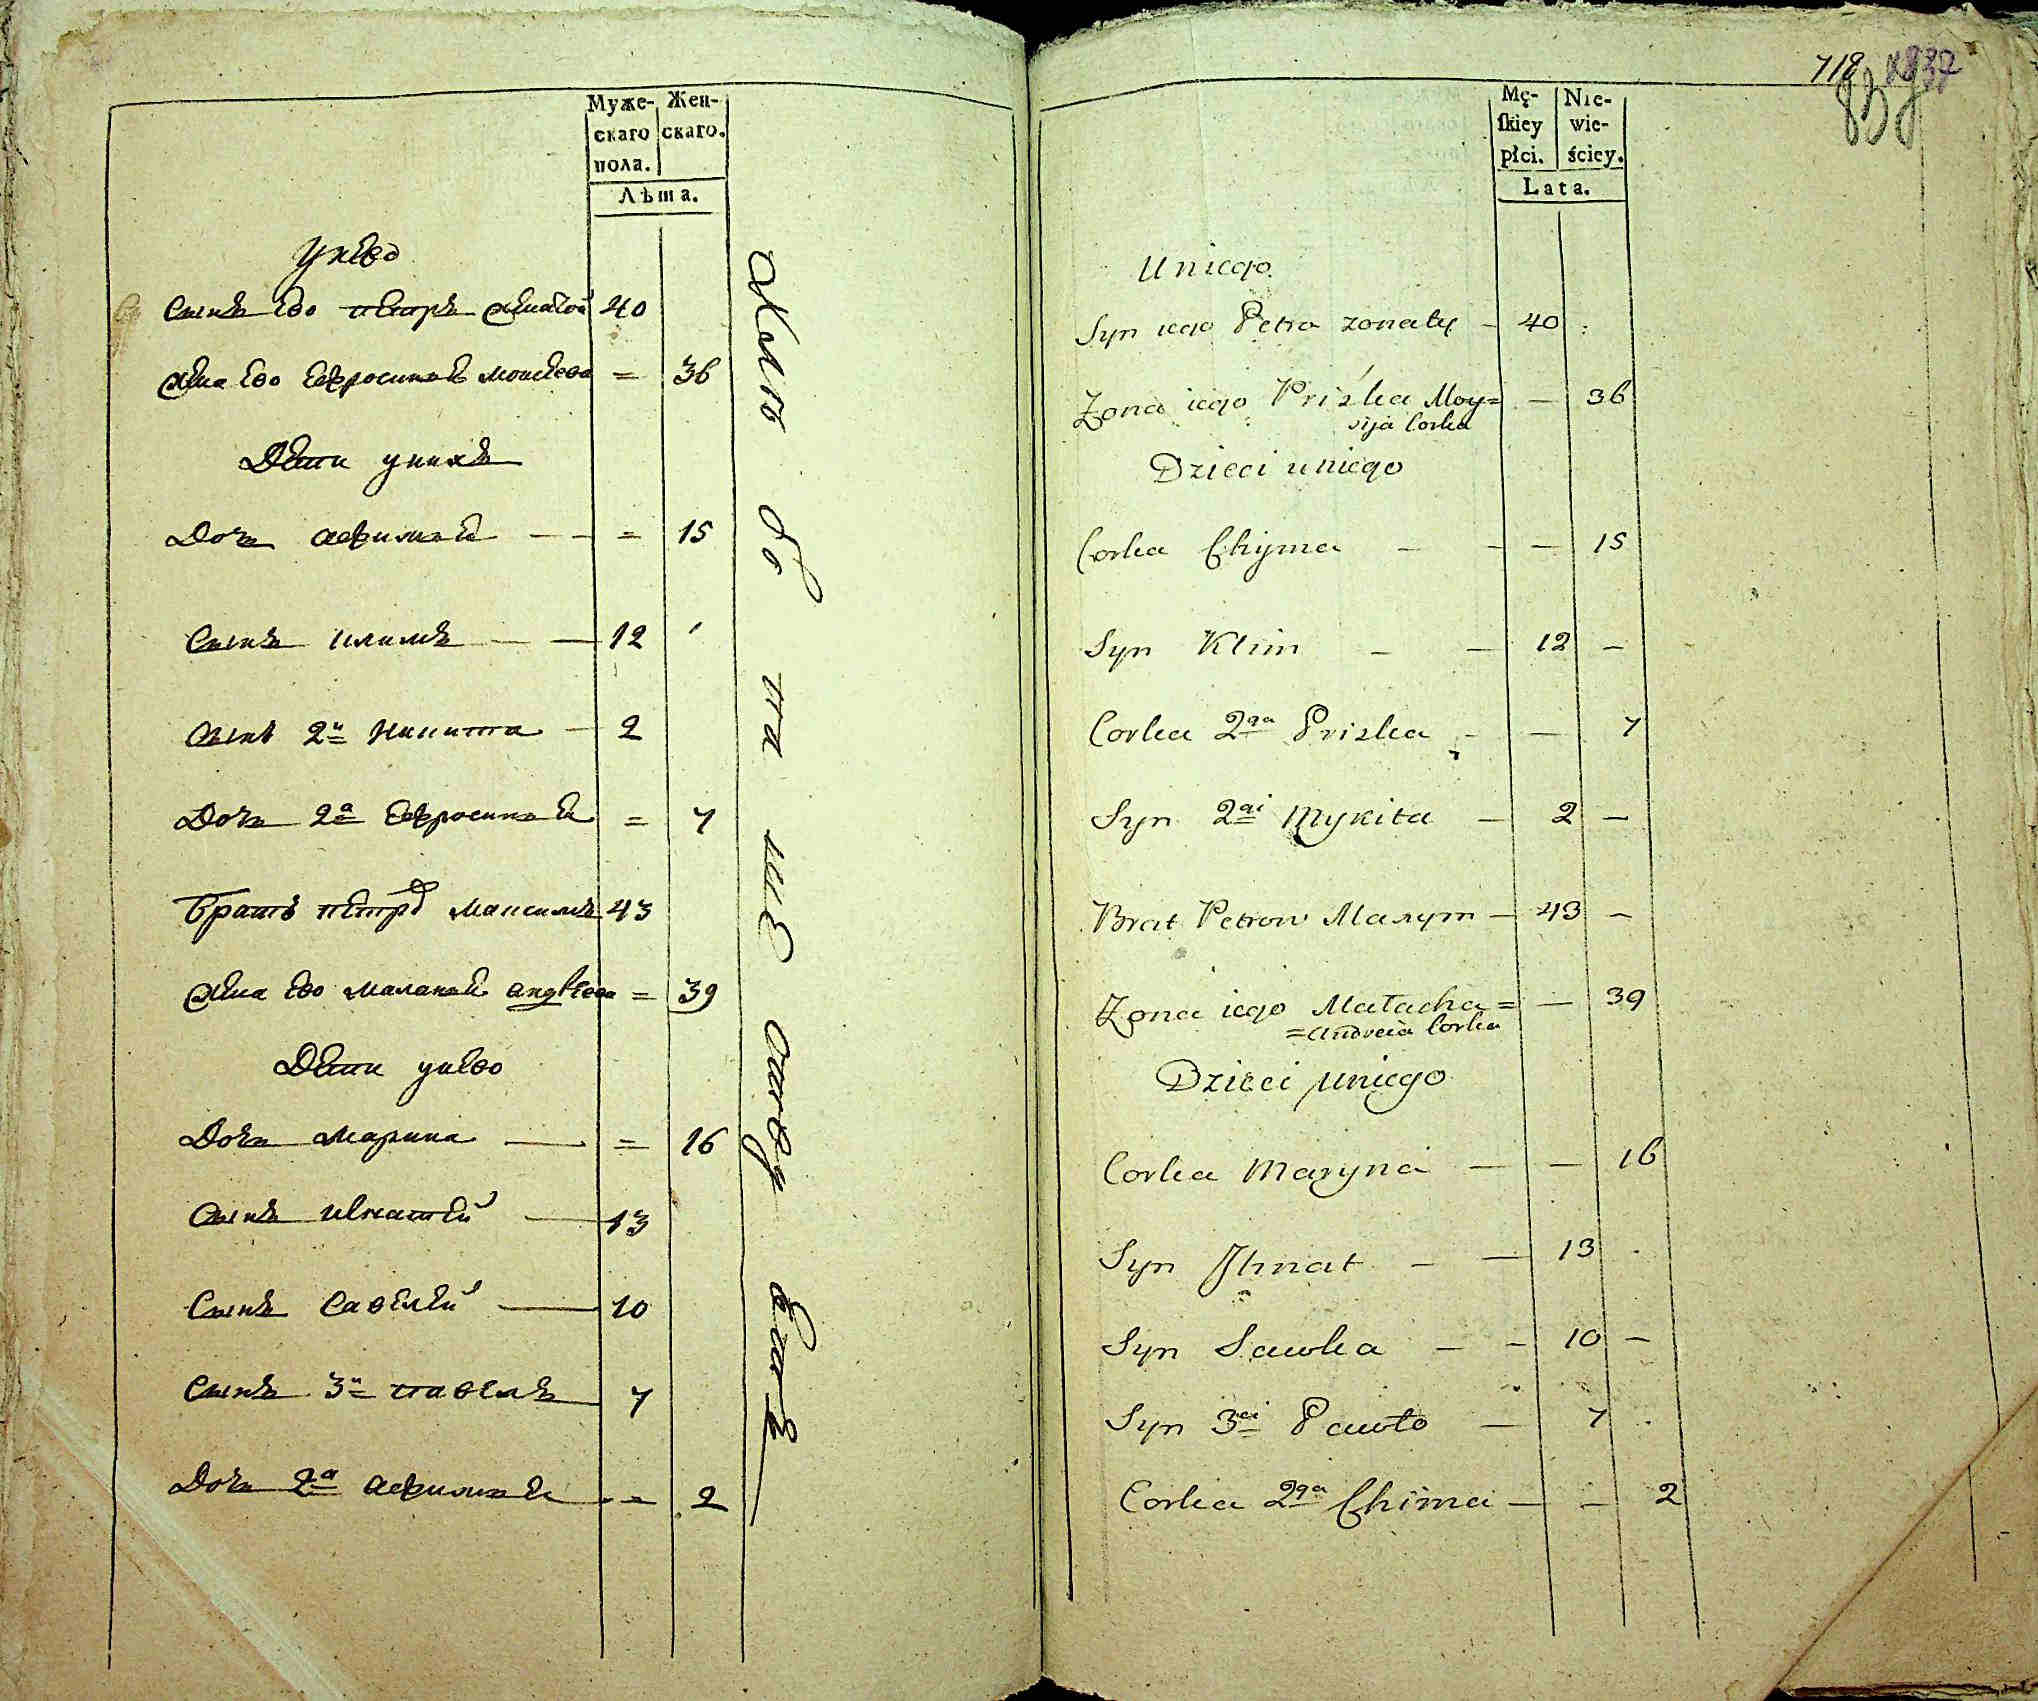 Муже-
скаго
пола.
Жен-
скаго.
Лѣта.
У него
Сынъ ево петръ женатой 40
Жена ево Ефросинья Моисеева = 36
Дети у нихъ
Дочь афимья = 15
Сынъ климъ 12
Сынъ 2й Никита 2
Дочь 2а Ефросинья = 7
Братъ петра Максимъ 43
Жена ево маланья андреева = 39
Дети у нево
Дочь Марина = 16
Сынъ игнатей 13
Сынъ Савелей 10
Сынъ 3й павелъ 7
Дочь 2а афимья = 2
718
837
Mę-
ſkiey
płci.
Nie-
wie-
ściey.
Lata.
Uniego
Syn iego Petro zonaty – 40
Zona iego Priska Moy=
sija Corka — 36
Dzieci uniego
Corka Chyma — — — 15
Syn Klim — — 12 —
Corka 2ga Priska — — 7
Syn 2gi Mykita — 2 —
Brat Petrow Maxym — 43 —
Zona iego Małacha= — 39
=Andreia Corka
Dzieci uniego
Corka Maryna — — 16
Syn Jhnat — — 13
Syn Sawka — — 10 —
Syn 3ci Pawło — 7
Corka 2ga Chima — — 2